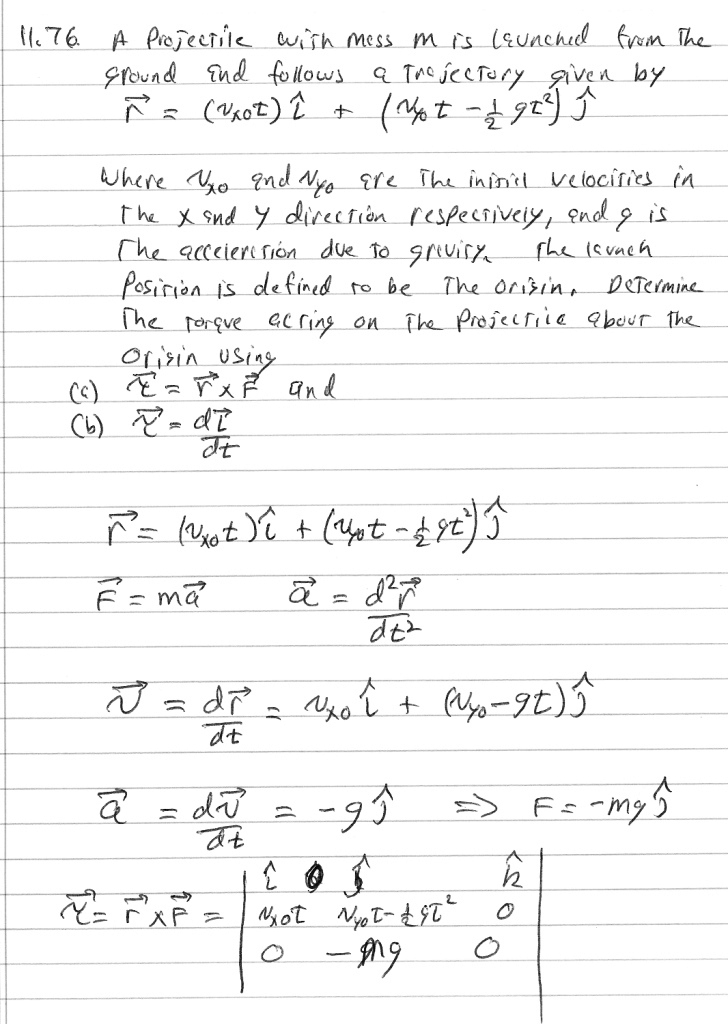 11.76. A Projectile with mass m is launched from the
ground and follows a trajectory given by
r⃗ = (v_x0 t) î + (v_y0 t - ½ gt²) ĵ
Where v_x0 and v_y0 are the initial velocities in
the x and y direction respectively, and g is
The acceleration due to gravity. The launch
Position is defined to be the origin. Determine
The torque acting on the Projectile about the
origin using
(a) τ⃗ = r⃗ x F⃗ and
(b) τ⃗ = dl⃗/dt
r⃗ = (v_x0 t) î + (v_y0 t - ½ gt²) ĵ
F⃗ = ma⃗ a⃗ = d²r⃗/dt²
v⃗ = dr⃗/dt = v_x0 î + (v_y0 - gt) ĵ
a⃗ = dv⃗/dt = -g ĵ => F = -mg ĵ
î ĵ k̂
τ⃗ = r⃗ x F⃗ = | v_x0 t v_y0 t - ½ gt² 0 |
0 -mg 0